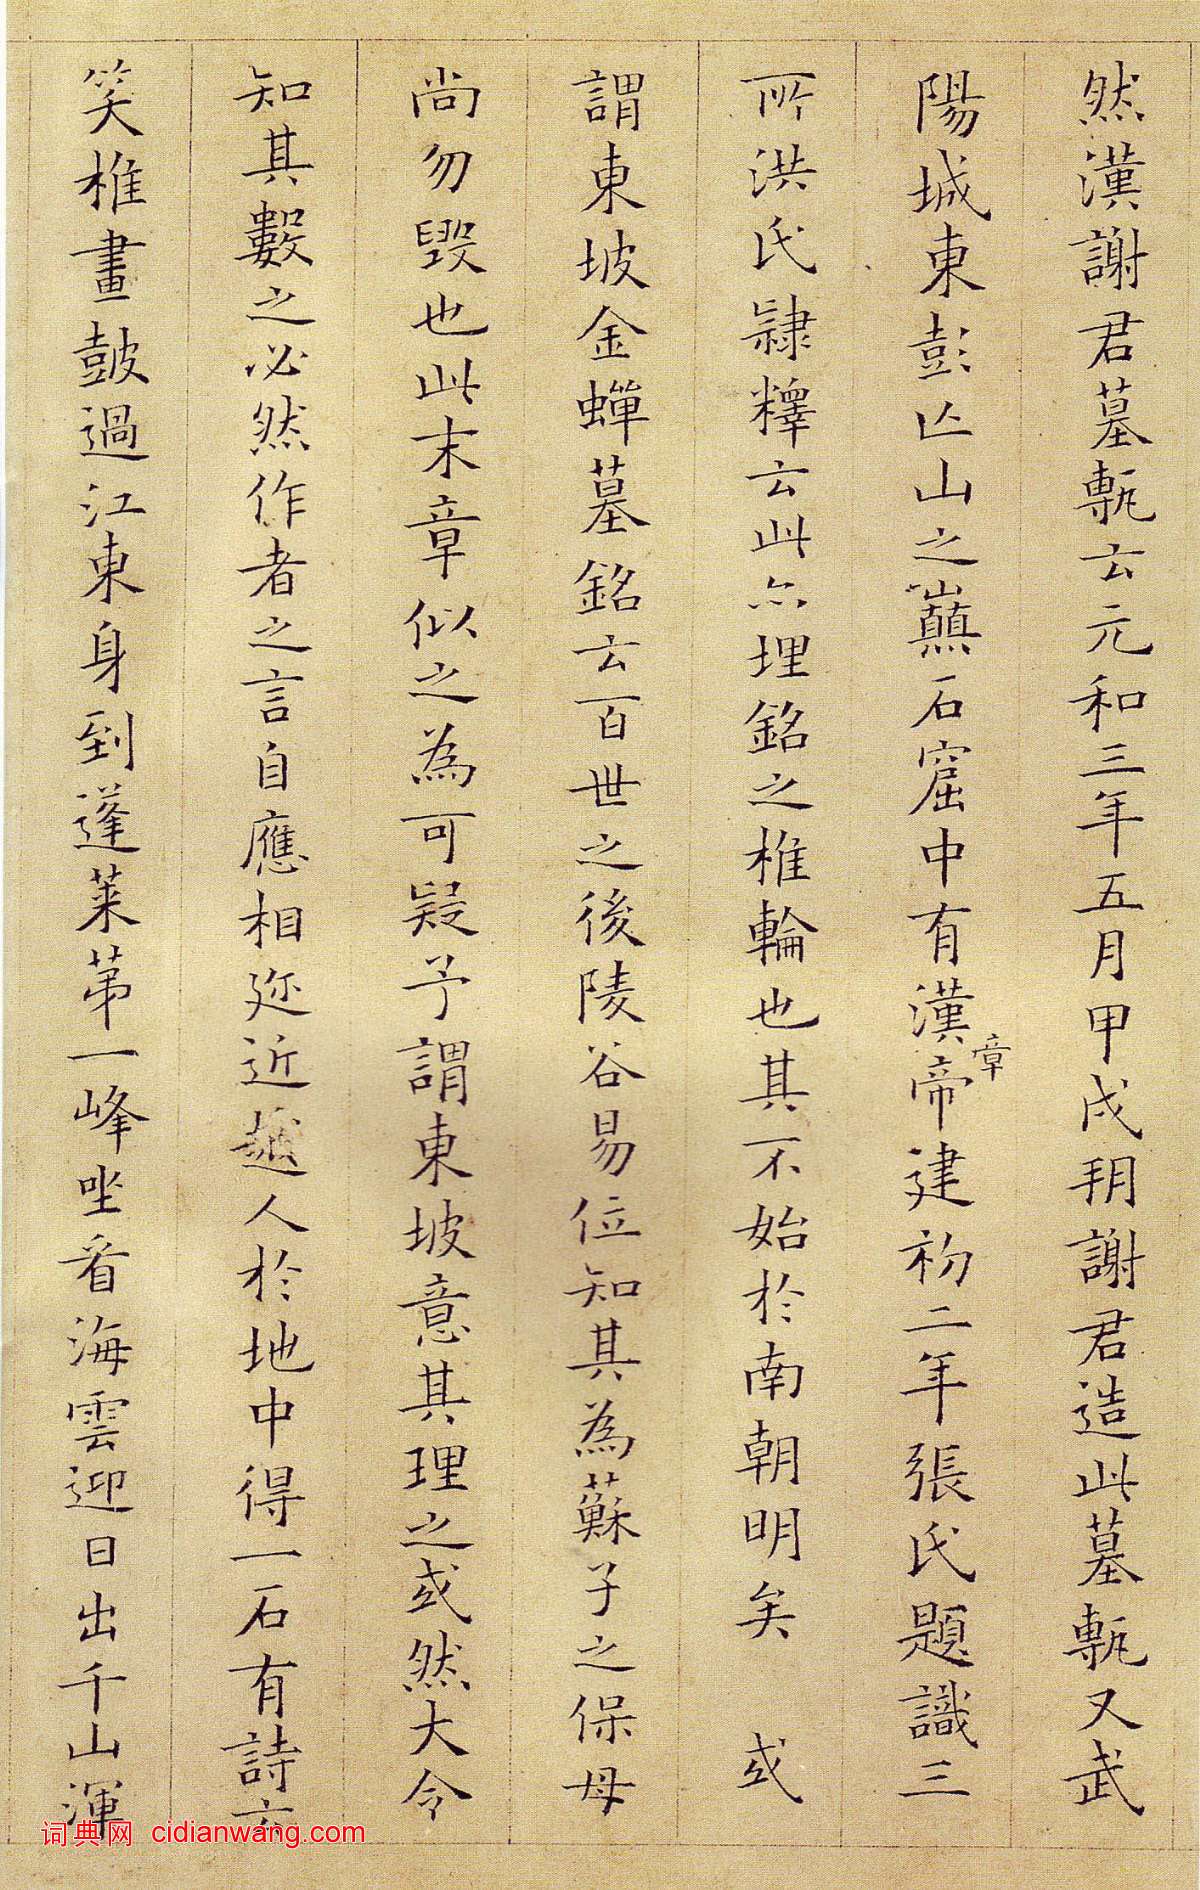 然漢謝君墓甎云元和三年五月甲戌朔謝君造此墓甎又武
陽城東彭亾山之巔石窟中有漢章帝建初二年張氏題識三
所洪氏隸釋云此亦埋銘之椎輪也其不始於南朝明矣 或
謂東坡金蟬墓銘云百世之後陵谷易位知其為蘇子之保母
尚勿毀也此末章似之為可疑予謂東坡意其理之或然大令
知其數之必然作者之言自應相迩近越人於地中得一石有詩云
笑椎畫鼓過江東身到蓬萊第一峰坐看海雲迎日出千山渾
词典网 cidianwang.com